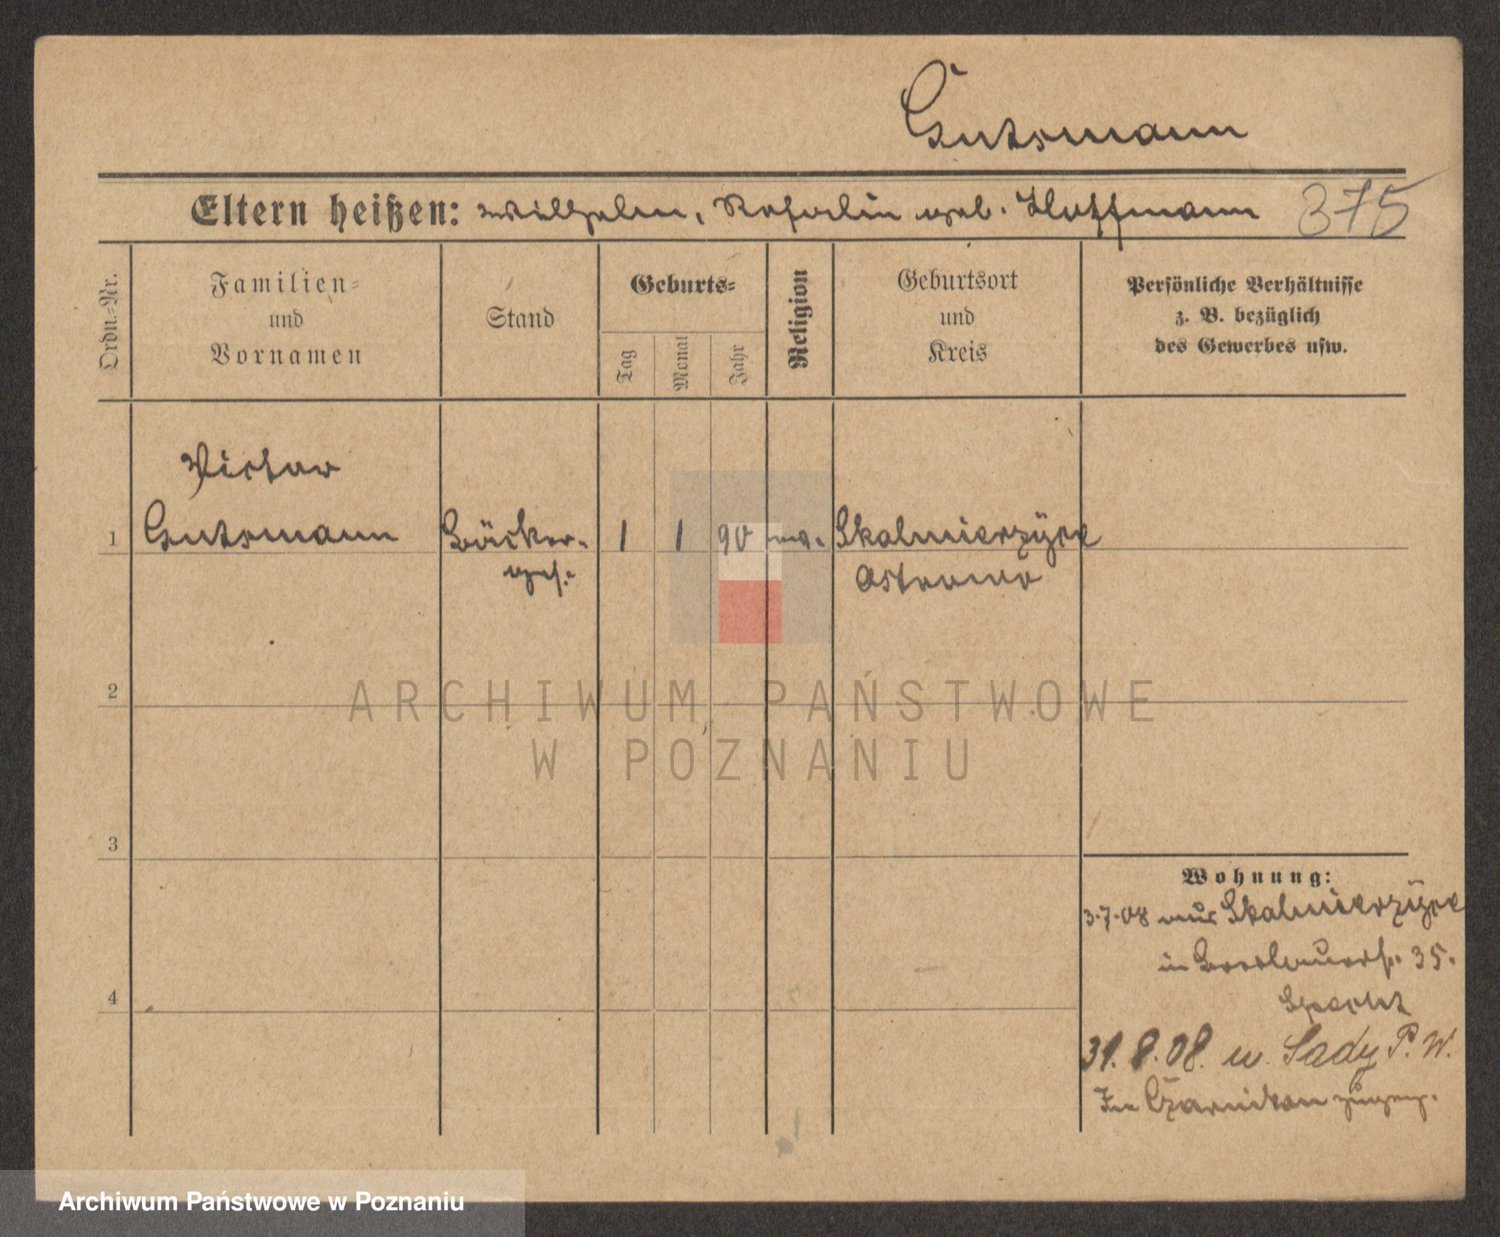 Gutsmann
Eltern heißen: Wilhelm, Rosalin geb. Hoffmann 375
Ordn.-Nr.
Familien-
und
Vornamen
Stand
Geburts-
Tag
Monat
Jahr
Religion
Geburtsort
und
Kreis
Persönliche Verhältnisse
z. B. bezüglich
des Gewerbes usw.
Victor
1 Gutsmann Bäcker- 1 1 90 Skalmierzyce
ges. Ostrowo
2
ARCHIWUM PAŃSTWOWE
W POZNANIU
3
Wohnung:
3.7.08 aus Skalmierzyce
in Breslauerstr. 35.
Specht
4
31.8.08. n. Sady P. W.
In Czarnikau zugez.
Archiwum Państwowe w Poznaniu